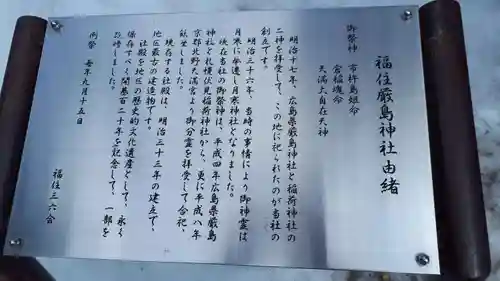 福住厳島神社由緒
御祭神 市杵島姫命
宮稲魂命
天満上自在天神
明治十七年、広島県厳島神社と稲荷神社の
二神を拝受して、この地に祀られたのが当社の
創立です。
明治三十六年、当時の事情により御神霊は
月寒に奉遷し月寒神社となりました。
現在当社の御祭神は、平成四年広島県厳島
神社と札幌伏見稲荷神社から、更に平成八年
京都北野天満宮より御分霊を拝受して合祀、
鎮座しました。
現存する社殿は、明治三十三年の建立で、
地区最古の建造物です。
社殿を地区の歴史的文化遺産として、永く
保存すべく開基百二十年を記念して、一部を
改修しました。
例祭 毎年九月十五日
福住三六会